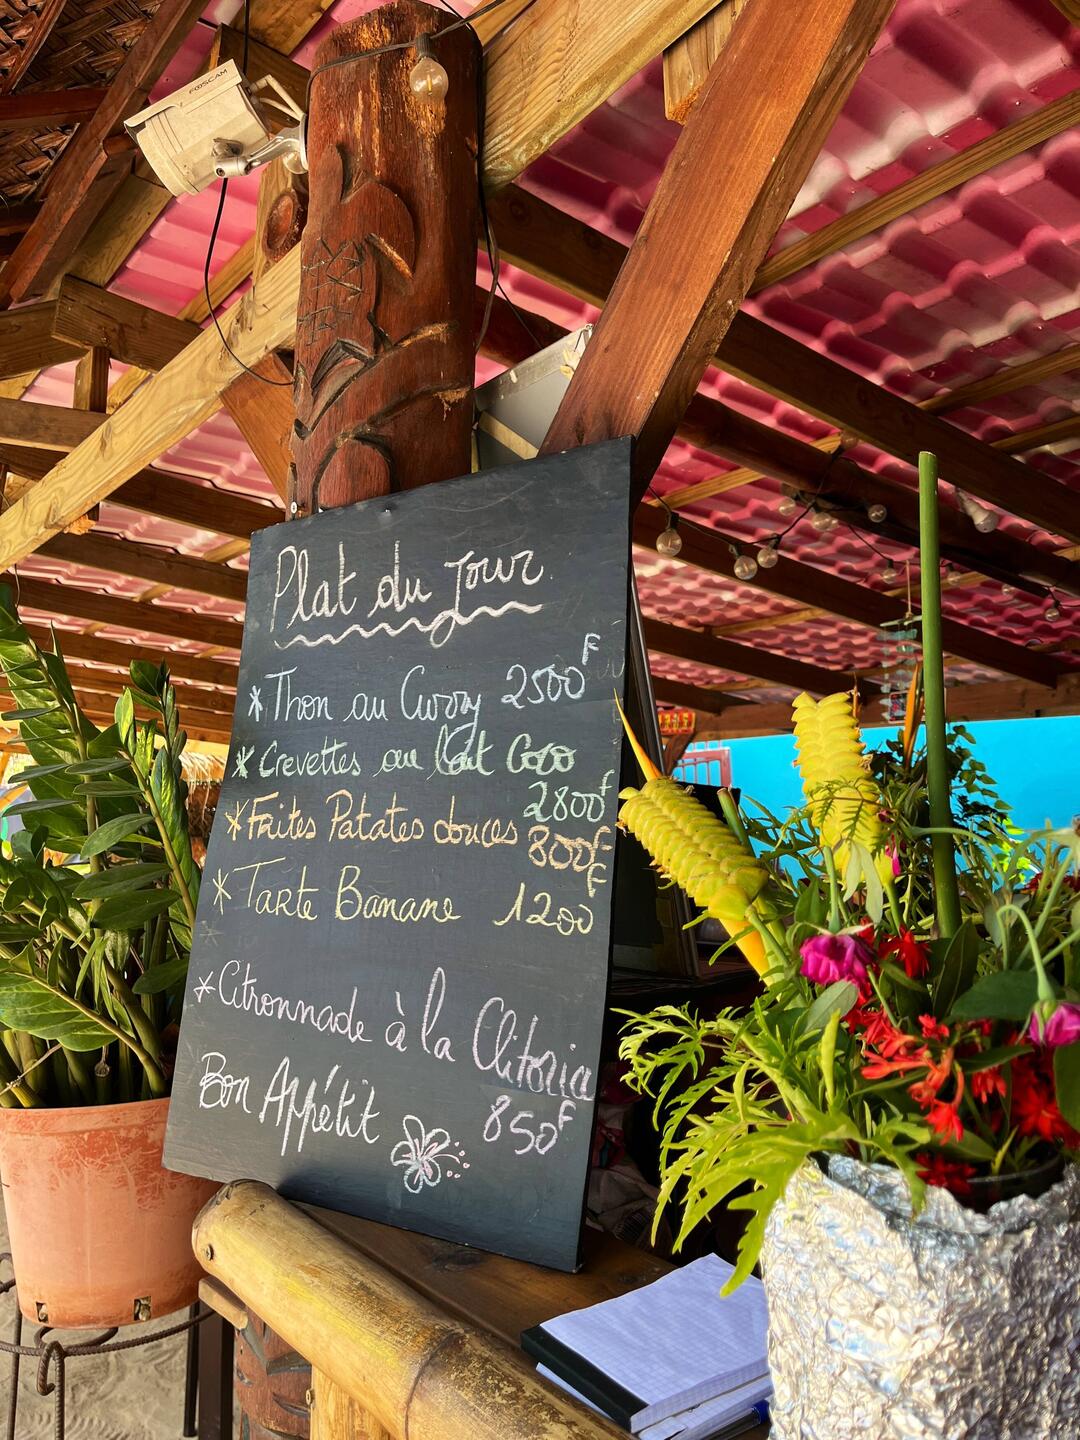 FOSCAM
Plat du jour
* Thon au Curry 2500F
* Crevettes au lait Coco
2800F
* Frites Patates douces 800F
* Tarte Banane 1200F
* Citronnade à la Clitoria
850F
Bon Appétit